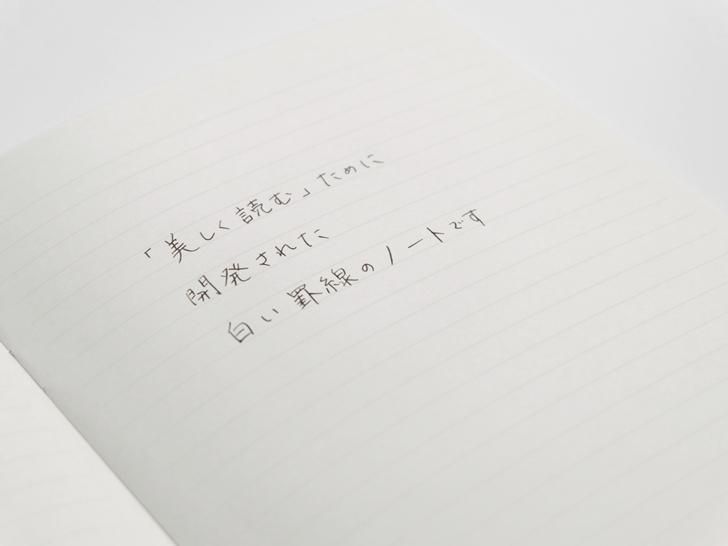 「美しく読む」ために
開発された
白い罫線のノートです